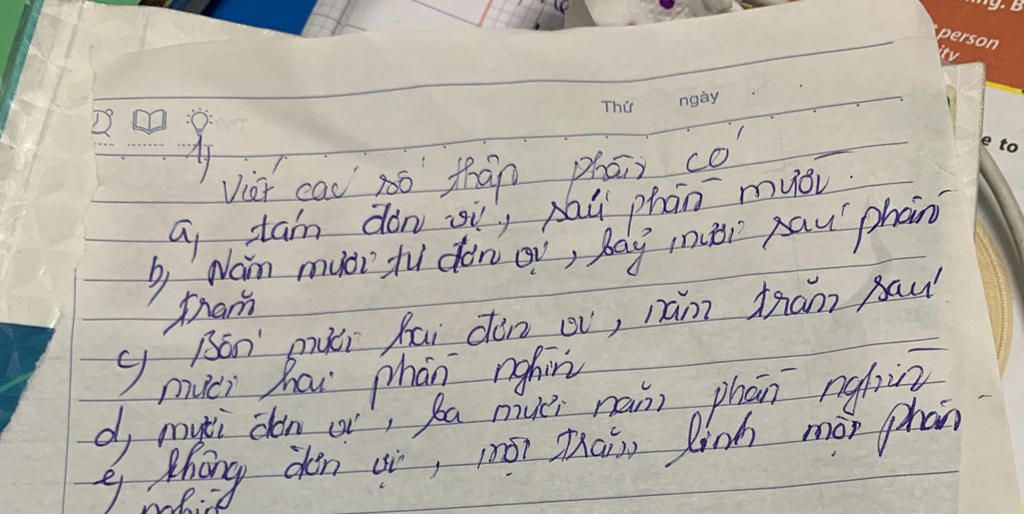 person
ity
e to
Thứ ngày
1)
Viết các số thập phân có
a, tám đơn vị, sáu phần mười.
b, Năm mươi tư đơn vị, bảy mươi sáu phần
trăm
c, Bốn mươi hai đơn vị, năm trăm sáu
mươi hai phần nghìn
d, mười đơn vị, ba mươi năm phần nghìn
e, không đơn vị, một trăm linh một phần
nghìn